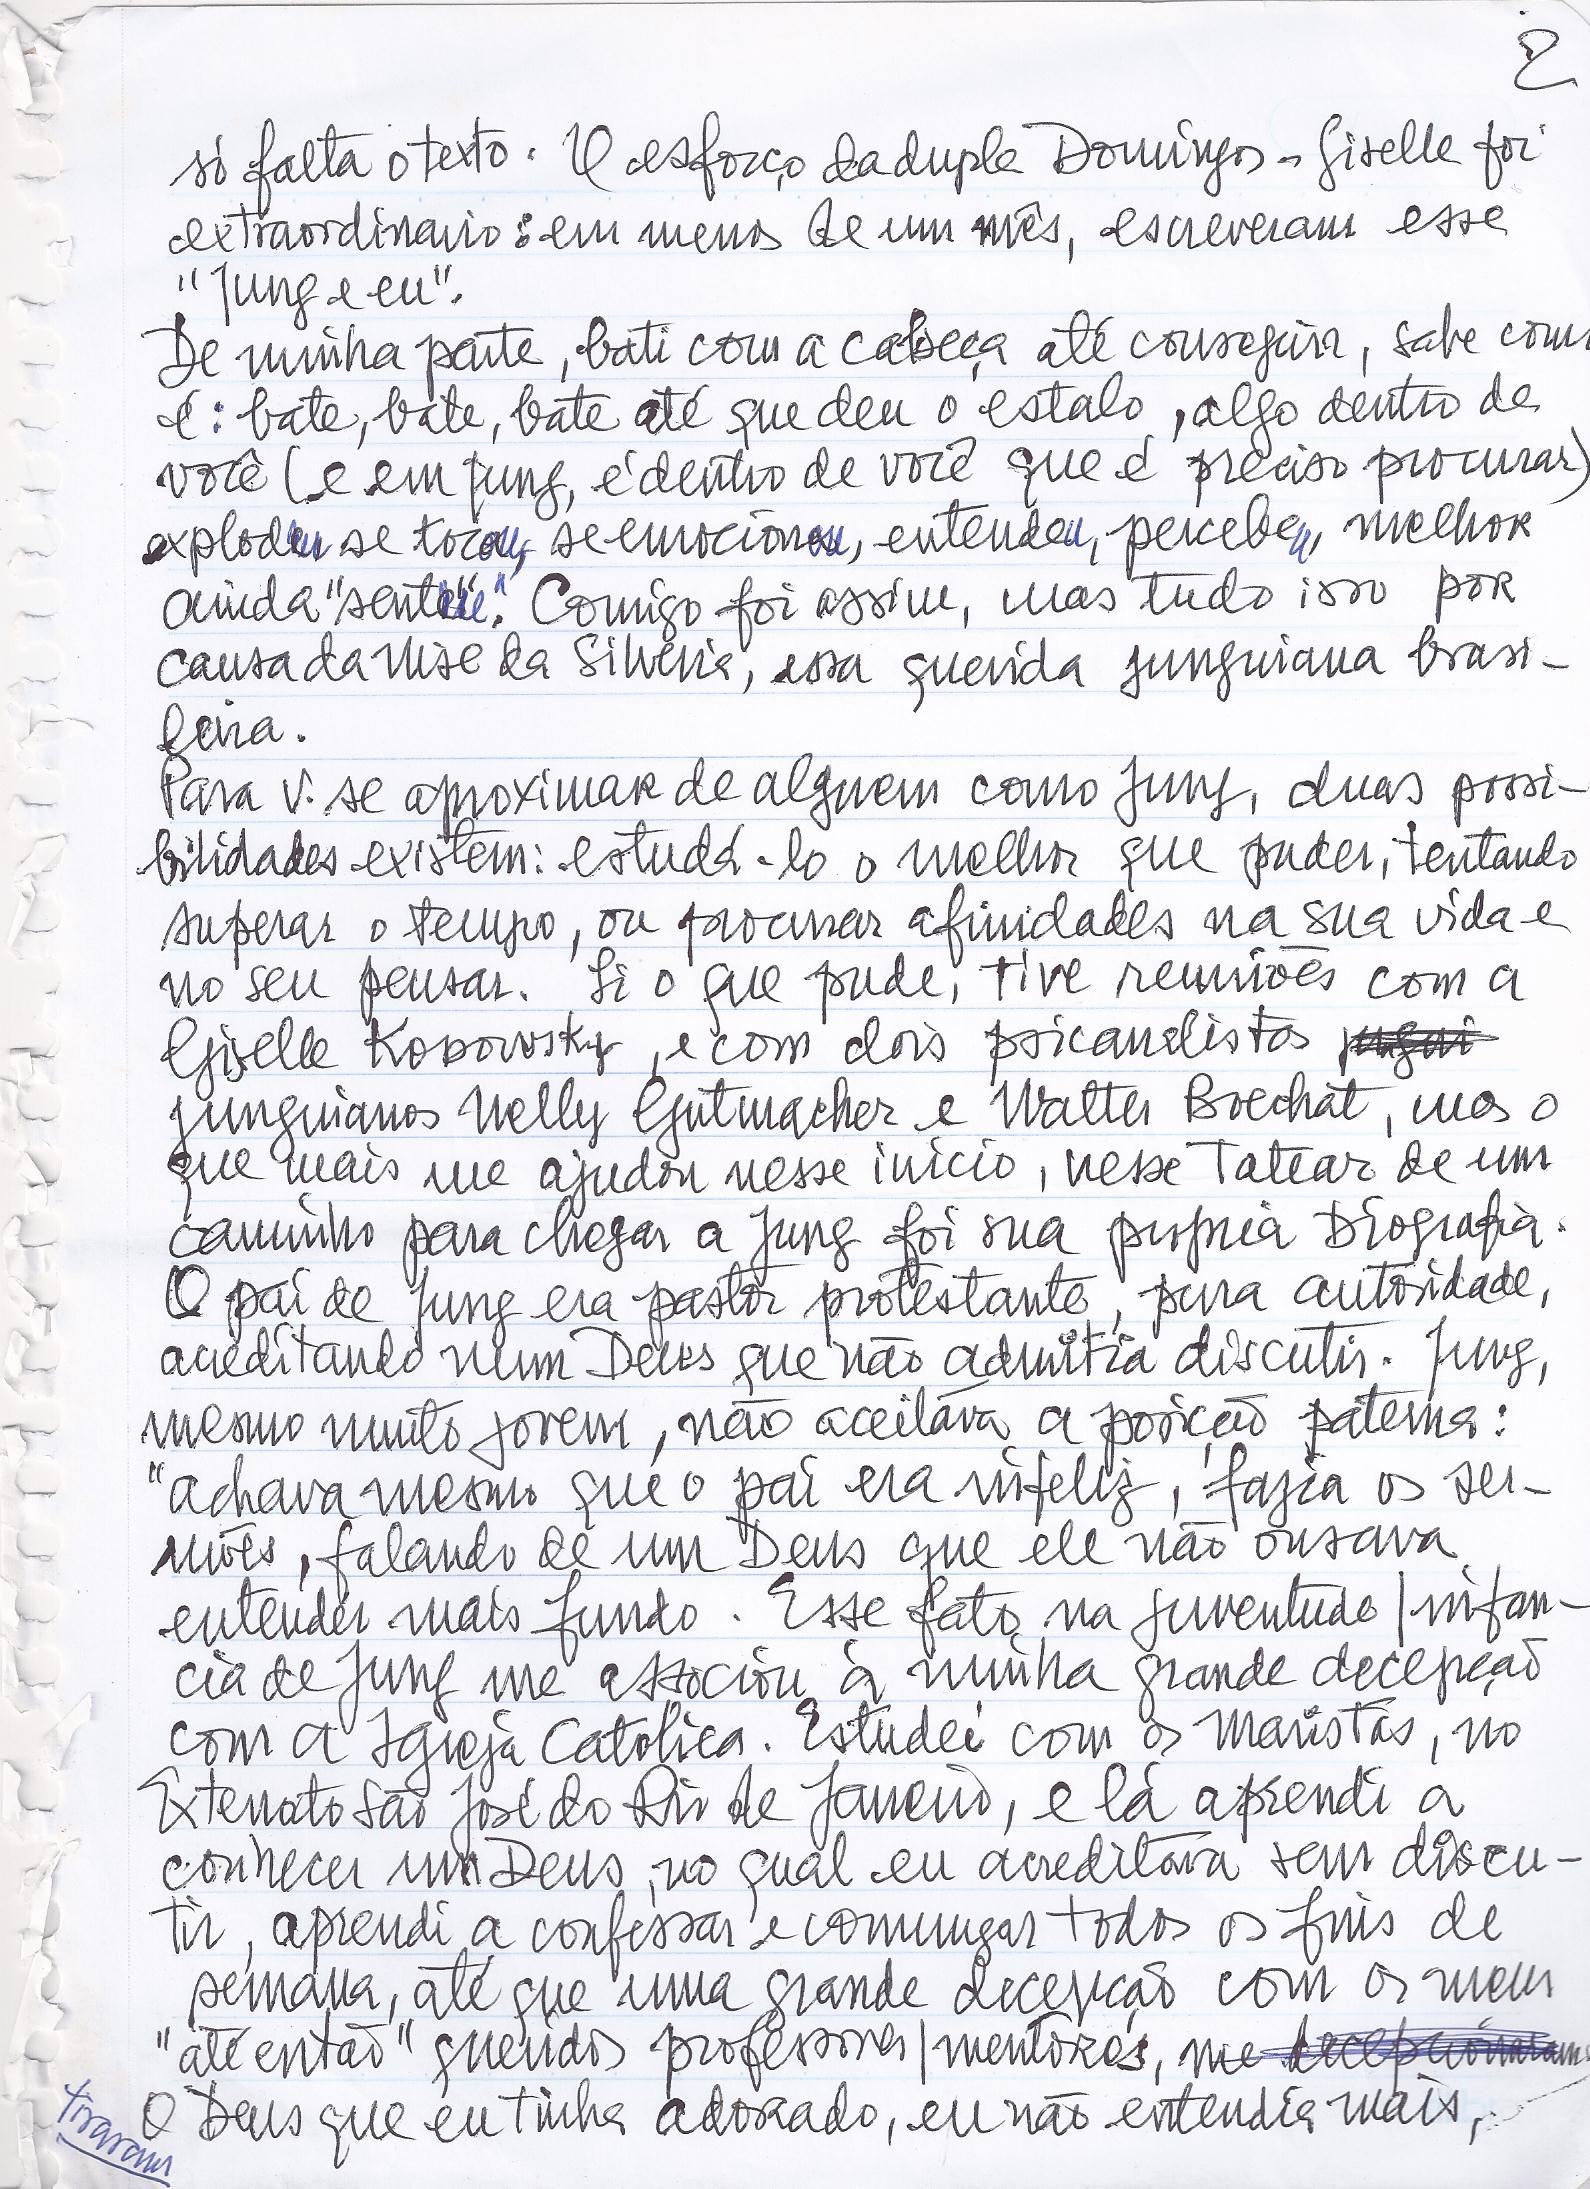 2
só falta o texto. O esforço da dupla Domingos - Giselle foi
extraordinario: em menos de um mês, escreveram esse
"Jung e eu".
De minha parte, bati com a cabeça até conseguir, sabe como
é: bate, bate, bate até que deu o estalo, algo dentro de
você (e em Jung, é dentro de você que é preciso procurar)
explodiu se tocou, se emocionou, entendeu, percebeu, melhor
ainda "sentiu". Comigo foi assim, mas tudo isso por
causa da Nise da Silveira, essa querida junguiana brasi-
leira.
Para v. se aproximar de alguem como Jung, duas possi-
bilidades existem: estudá-lo o melhor que puder, tentando
superar o tempo, ou procurar afinidades na sua vida e
no seu pensar. Li o que pude, tive reuniões com a
Giselle Kosovsky, e com dois psicanalistas jugui
junguianos Nelly Gutmacher e Walter Boechat, mas o
que mais me ajudou nesse inicio, nesse tatear de um
caminho para chegar a Jung foi sua propria Biografia.
O pai de Jung era pastor protestante, pura autoridade,
acreditando num Deus que não admitia discutir. Jung,
mesmo muito jovem, não aceitava a posição paterna:
"achava mesmo que o pai era infeliz, fazia os ser-
mões, falando de um Deus que ele não ousava
entender mais fundo. Esse fato na juventude/infan-
cia de Jung me associou à minha grande decepção
com a Igreja Catolica. Estudei com os Maristas, no
Extenato São José do Rio de Janeiro, e lá aprendi a
conhecer um Deus, no qual eu acreditava sem discu-
tir, aprendi a confessar e comungar todos os fins de
semana, até que uma grande decepção com os meus
"até então" queridos professores/mentores, me decepcionaram
tiraram
O Deus que eu tinha adorado, eu não entendia mais,